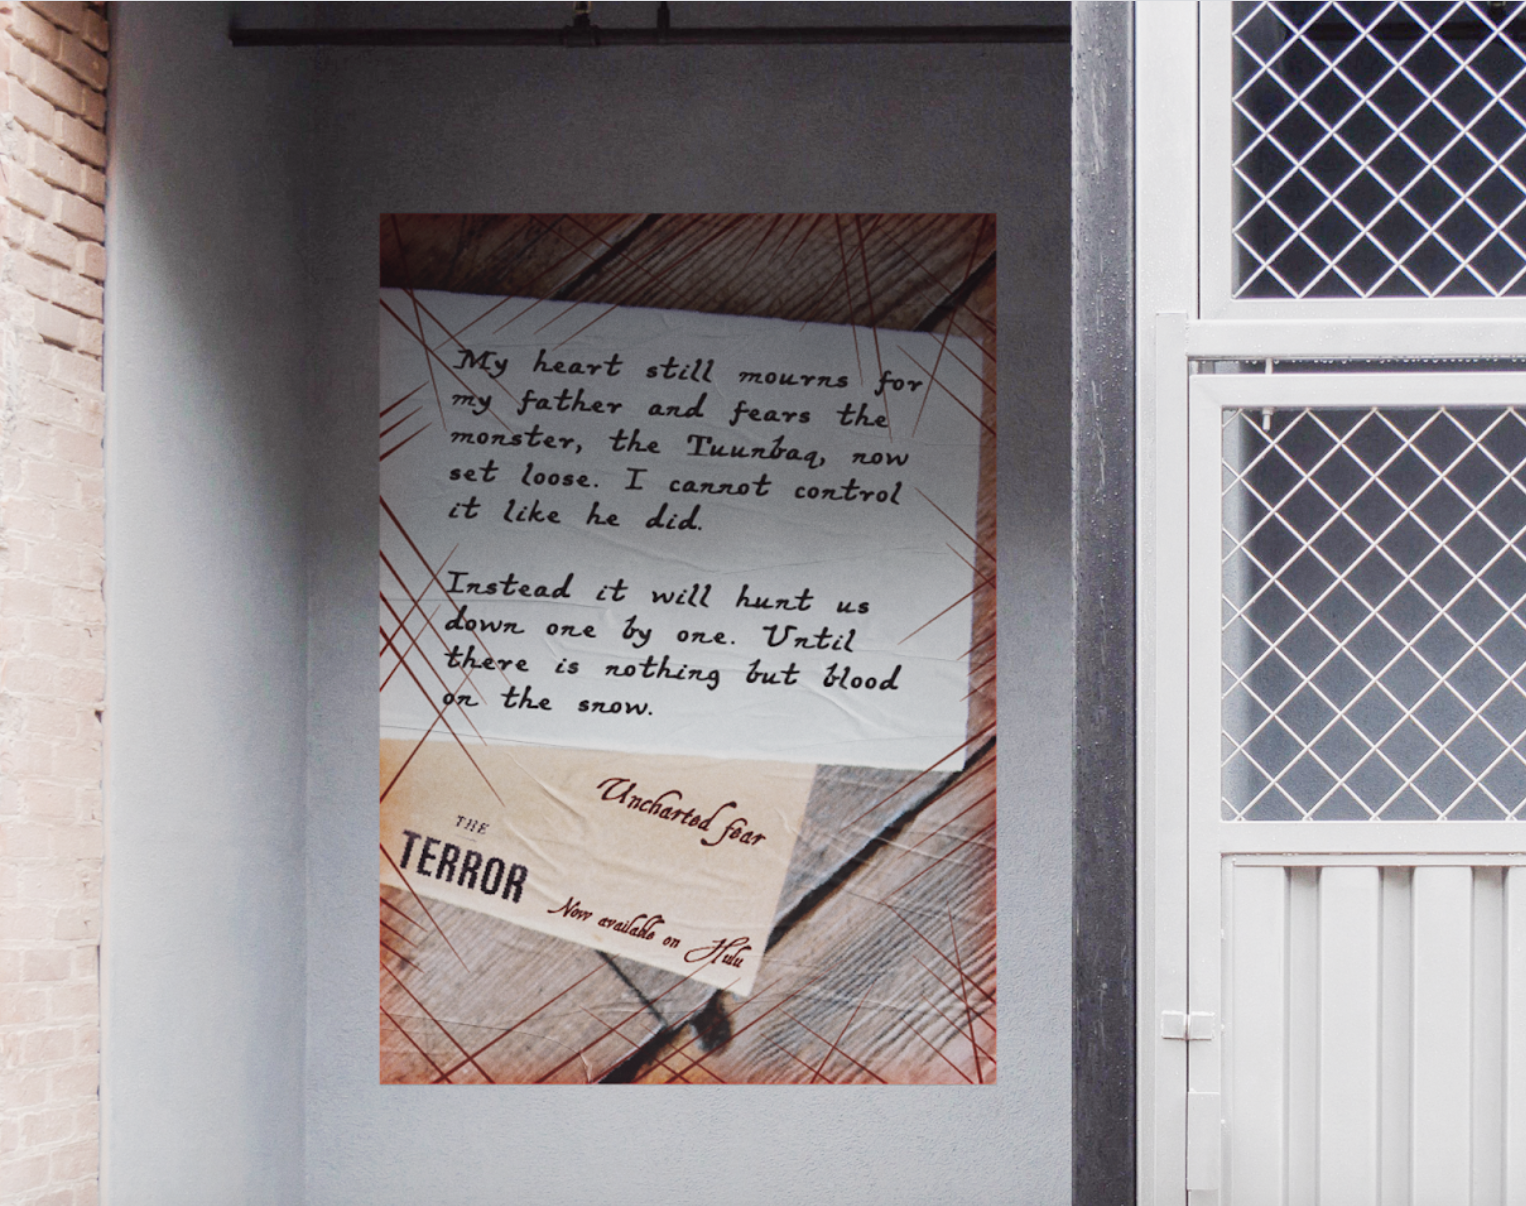 My heart still mourns for
my father and fears the
monster, the Tuunbaq, now
set loose. I cannot control
it like he did.
Instead it will hunt us
down one by one. Until
there is nothing but blood
on the snow.
Uncharted fear
THE
TERROR
Now available on Hulu